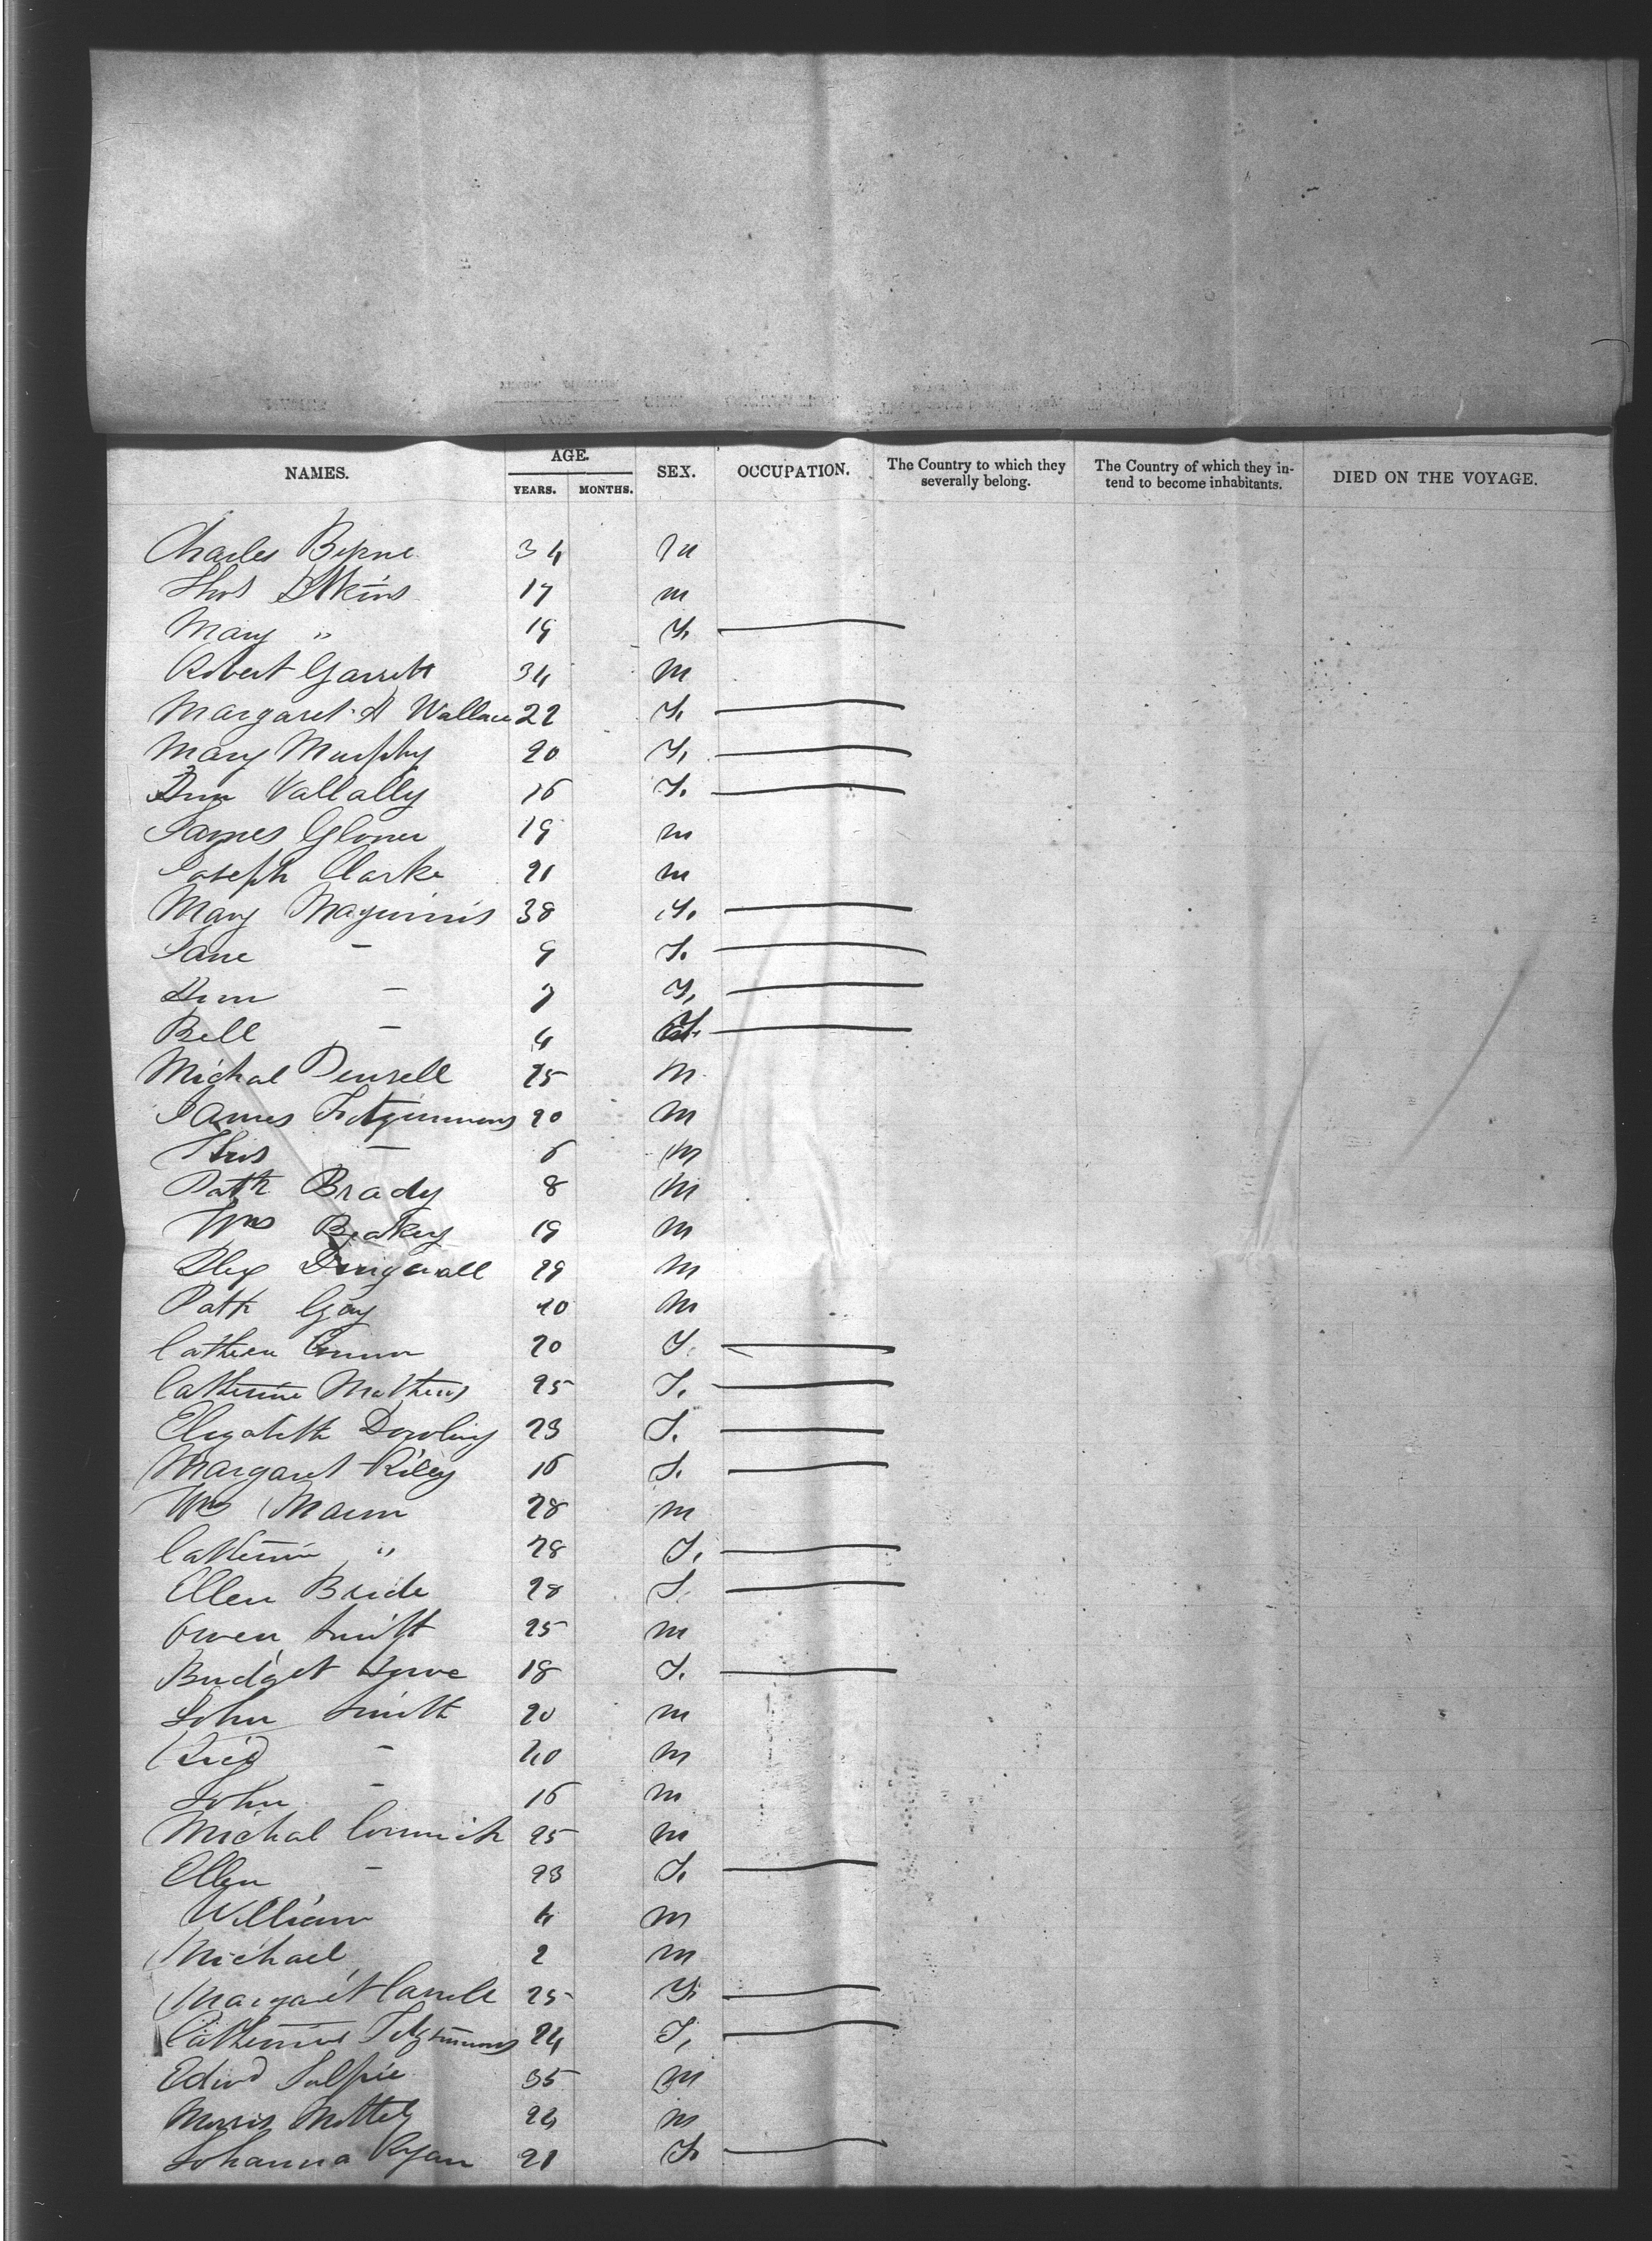 NAMES. AGE. YEARS. MONTHS. SEX. OCCUPATION. The Country to which they severally belong. The Country of which they intend to become inhabitants. DIED ON THE VOYAGE.
Charles Byrne 34 m
Thos Atkins 17 m
Mary " 19 F.
Robert Garrett 34 m
Margaret A Wallace 22 F.
Mary Murphy 20 F.
Ann Vallally 16 F.
James Glover 19 m
Joseph Clarke 21 m
Mary Maguinnis 38 F.
Jane - 9 F.
Ann - 7 F.
Bell - 4 F.
Michal 25 m
James Fitzsimmons 20 m
Thos - 6 m
Patk Brady 8 m
Wm 19 m
Alex Dingwall 29 m
Patk Gay m
20 F.
Catherine Mathews 25 F.
Elizabeth Dowling 23 F.
Margaret Riley 16 F.
Wm Mann 28 m
Catherine " 28 F.
Ellen Bride 28 F.
Owen Smith 25 m
Bridget 18 F.
John Smith 20 m
- 40 m
John - 16 m
Michal Cormick 25 m
Ellen - 23 F.
William 4 m
Michael 2 m
Margaret 25 F.
Catherine Fitzsimmons 24 F.
Edwd 35 m
Morris 24 m
Johanna Ryan 21 F.